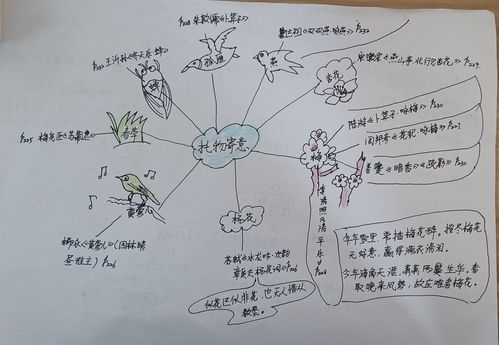 P228 朱敦儒《卜算子》
孤雁
史达祖《双双燕·咏燕》P232
燕
宋徽宗《燕山亭·北行见杏花》P229
杏花
王沂孙《齐天乐·蝉》
蝉
P225 梅尧臣《苏幕遮》
春草
托物寄意
陆游《卜算子·咏梅》P230
周邦彦《花犯·咏梅》P227
姜夔《暗香》《疏影》
梅
李清照《清平乐》
年年雪里,常插梅花醉。挼尽梅花
无好意,赢得满衣清泪。
今年海角天涯,萧萧两鬓生华。看
取晚来风势,故应难看梅花。
黄莺儿
柳永《黄莺儿》(园林晴
昼谁主)P226
杨花
苏轼《水龙吟·次韵
章质夫杨花词》P226
似花还似非花,也无人惜从
教坠。